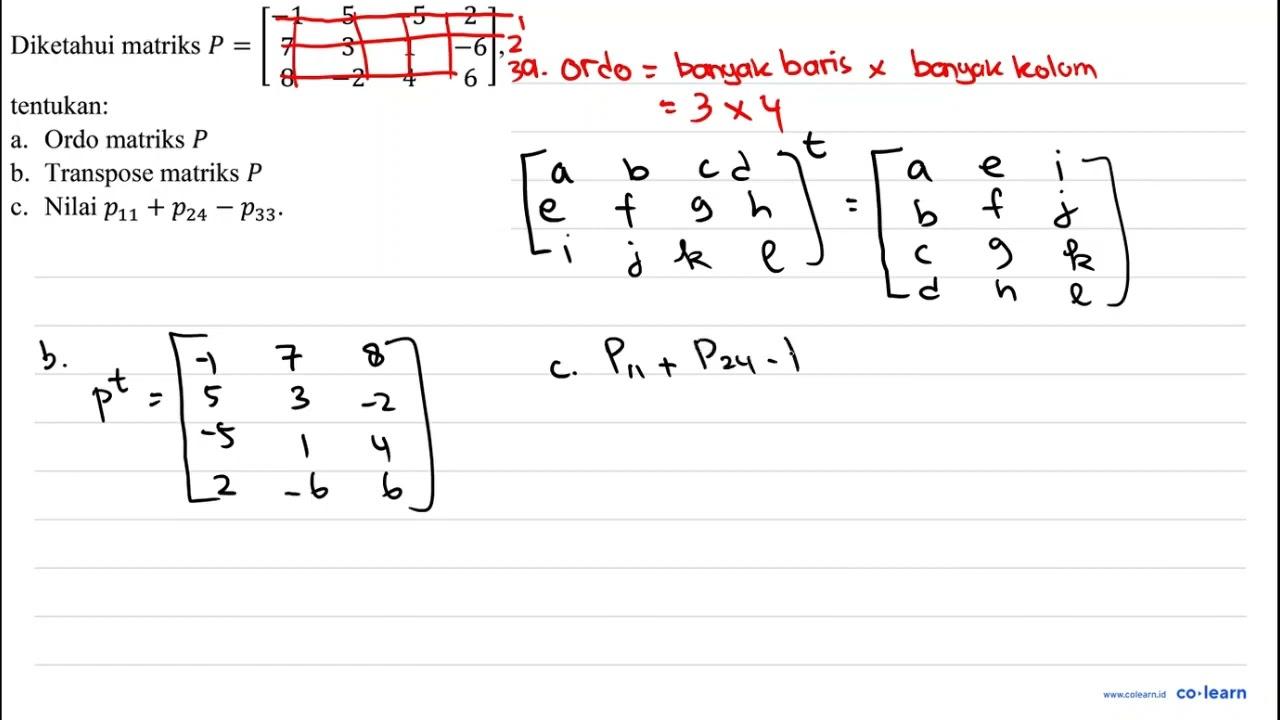 Diketahui matriks P = [ −1 5 −5 2
7 3 1 −6 ],
8 −2 4 6
1
2
3
a. Ordo = banyak baris × banyak kolom
= 3 × 4
tentukan:
a. Ordo matriks P
b. Transpose matriks P
c. Nilai p₁₁ + p₂₄ − p₃₃.
[ a b c d ]ᵗ = [ a e i ]
e f g h b f j
i j k l c g k
d h l
b. Pᵗ = [ -1 7 8 ]
5 3 -2
-5 1 4
2 -6 6
c. P₁₁ + P₂₄ - 1
www.colearn.id co·learn